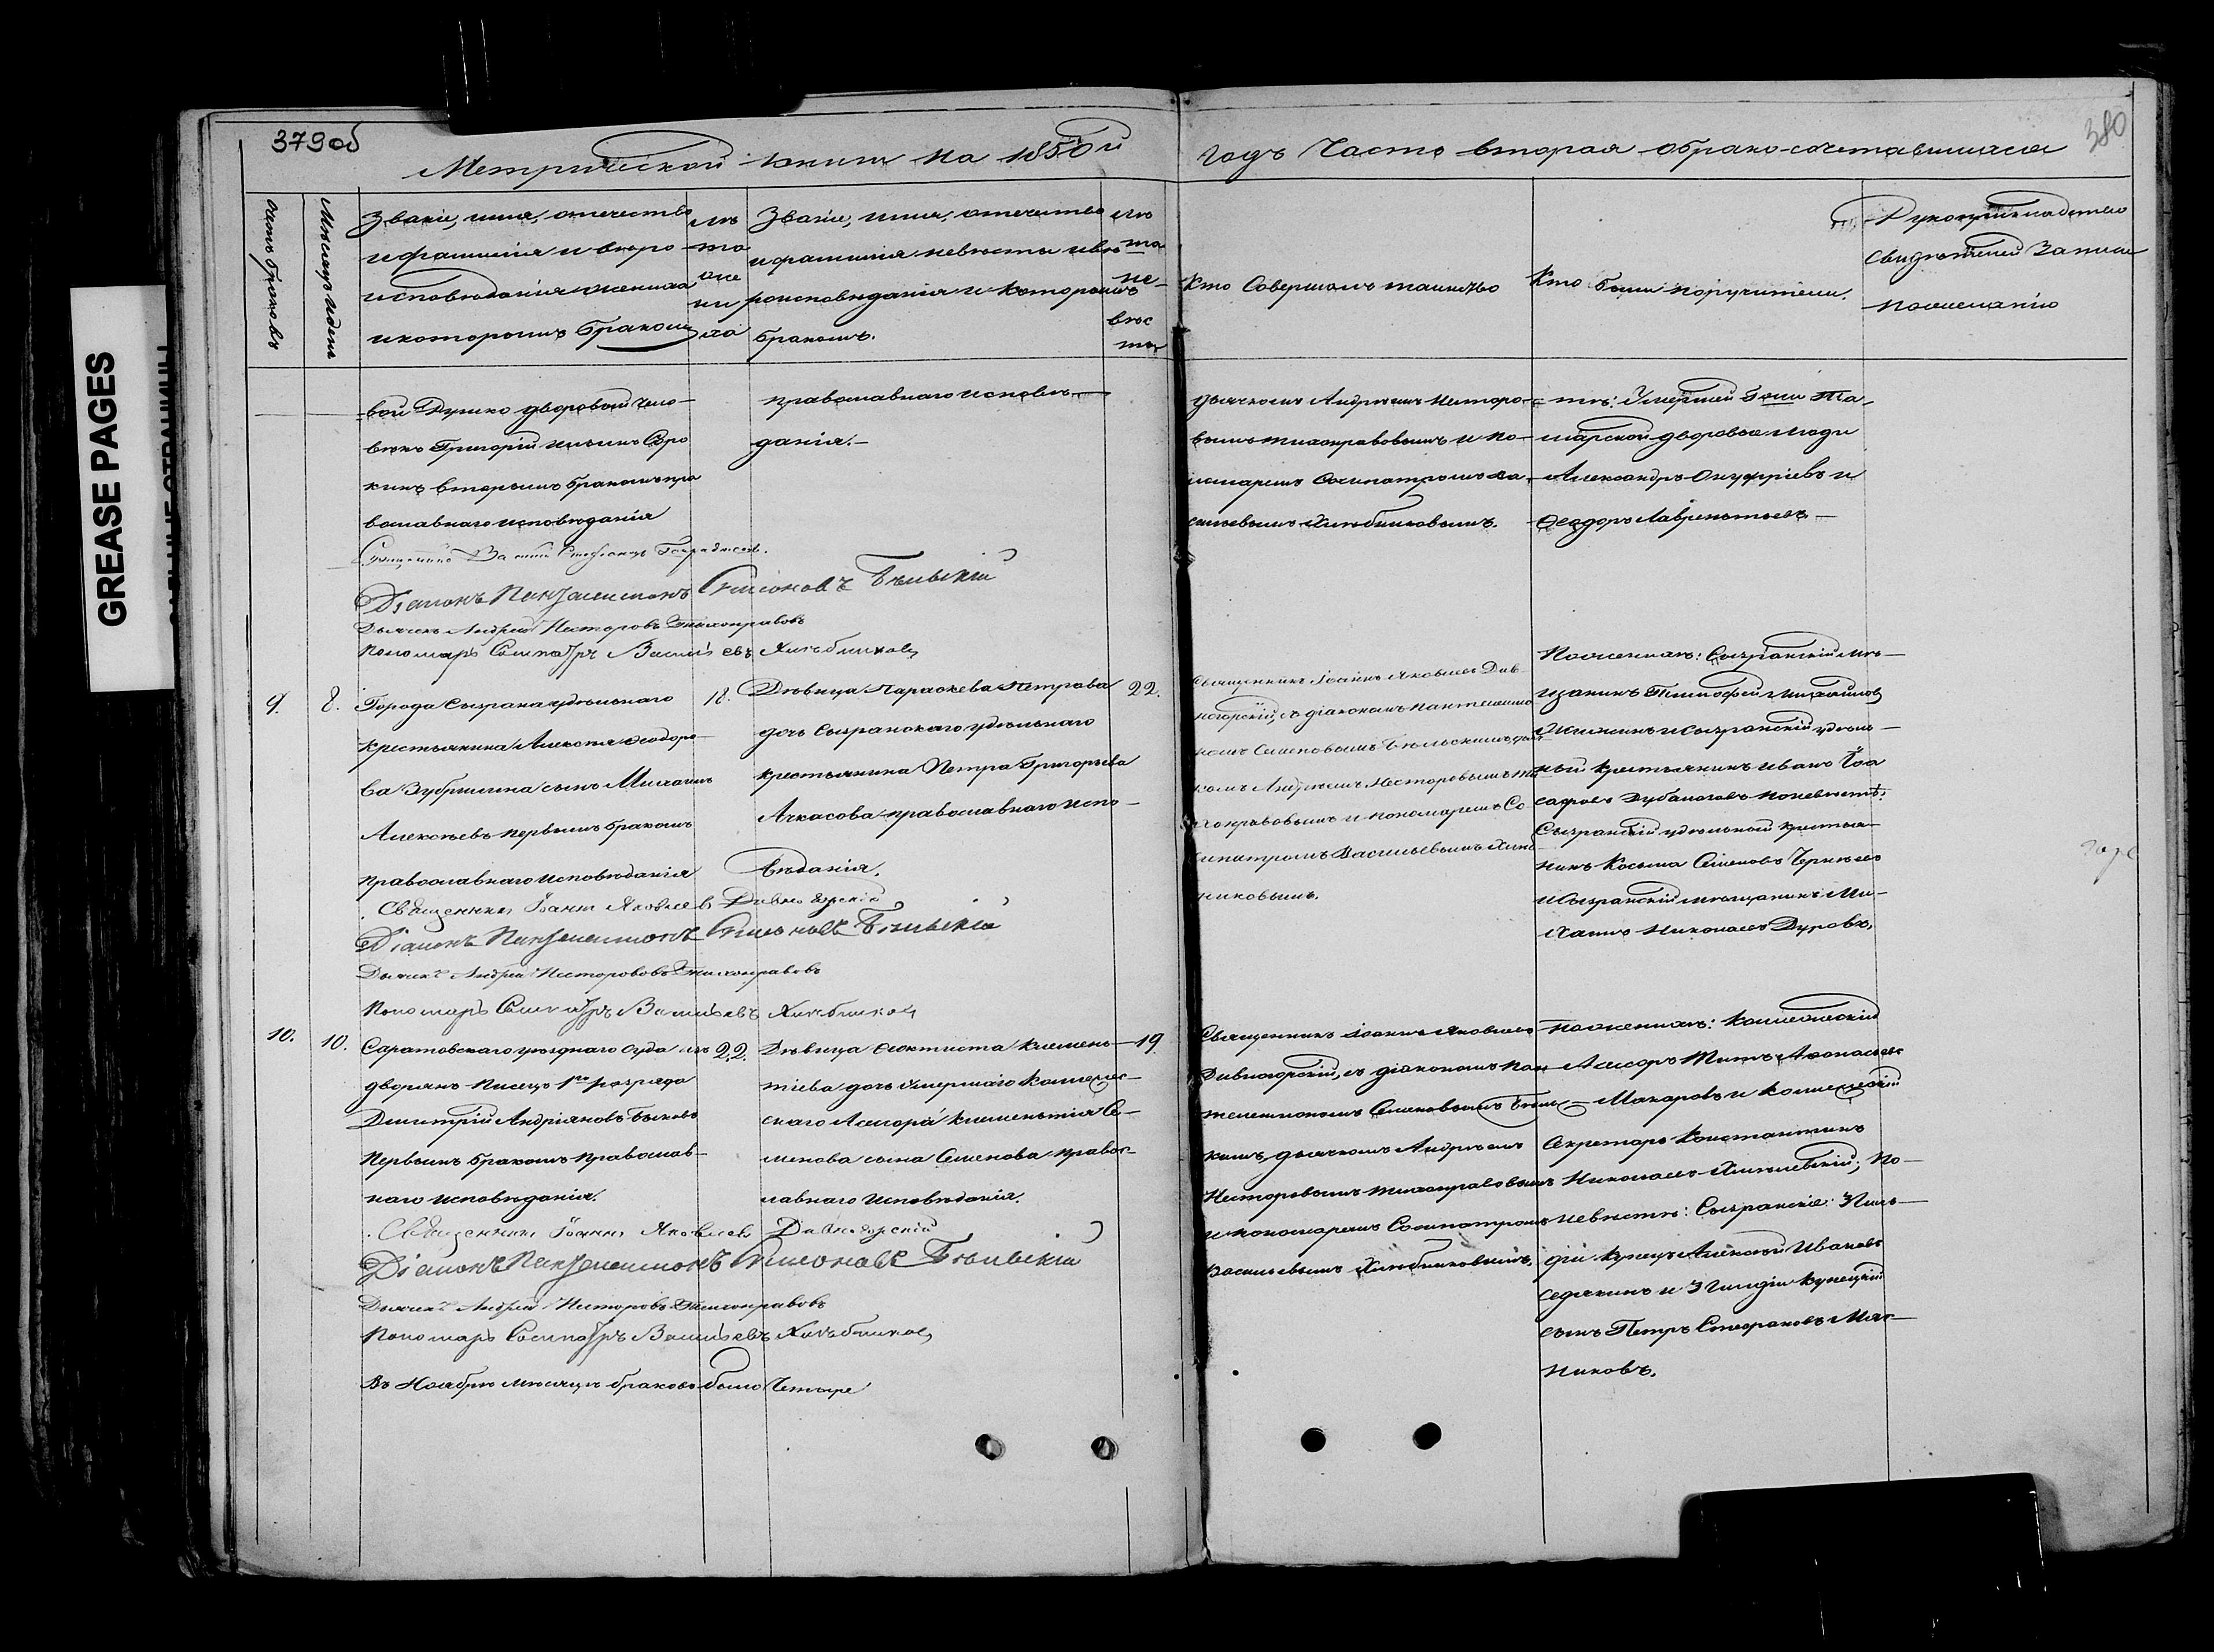 379 об
380
Метрической книги на 1850й
годъ Часть вторая о бракосочетавшихся
Счетъ браковъ
Мѣсяцъ и день
Званіе, имя, отечество
и фамилія и вѣро
исповѣданія жениха
и которымъ бракомъ
Лѣ
та
же
ни
ха
Званіе, имя, отечество
и фамилія невѣсты и вѣ
роисповѣданія и которымъ
бракомъ.
Лѣ
та
не-
вѣс
ты
Кто Совершалъ таинство
Кто были поручители.
Рукоприкладство
Свидѣтелей Записи
по желанію
вой Душко дворовый чело-
вѣкъ Григорій
кинъ вторымъ бракомъ пра
вославнаго исповѣданія
православнаго исповѣ-
данія.-
дьячкомъ Андреемъ Несторо-
вымъ Тихонравовымъ и по-
номаремъ Сосипатромъ Ва-
сильевымъ Хлѣбниковымъ.
дворовые люди
Александръ Онуфріевъ и
Ѳеодоръ Лаврентьевъ
Діаконъ Пантелеимонъ Симоновъ Бѣльскій
Дьячекъ Андрей Несторовъ Тихонравовъ
Пономарь Сосипатръ Васильевъ Хлѣбников
9.
8.
Города Сызрана удѣльнаго
крестьянина Алексѣя Ѳеодоро-
ва Зубрилина сынъ Михаилъ
Алексѣевъ первымъ бракомъ
православнаго исповѣданія
18.
Дѣвица Параскева Петрова
дочь Сызранскаго удѣльнаго
крестьянина Петра Григорьева
Ачкасова православнаго испо-
вѣданія.
22.
Священникъ Іоаннъ Яковлевъ Див-
ногорскій, съ діакономъ Пантелеимо
номъ Семеновымъ Бѣльскимъ, дьяч
комъ Андреемъ Несторовымъ Ти
хонравовымъ и пономаремъ Со
сипатромъ Васильевымъ Хлѣб
никовымъ.
По женихѣ: Сызранскій мѣ-
щанинъ Тимофей Михайловъ
и Сызранскій удѣль-
ный крестьянинъ Иванъ Іоа
сафовъ по невѣстѣ:
Сызранскій удѣльной крестья-
нинъ Косьма Семеновъ
и Сызранскій мѣщанинъ Ми-
хаилъ Николаевъ Дуровъ.
Священникъ Іоаннъ Яковлевъ Дивногорскій
Діаконъ Пантелеимонъ Симоновъ Бѣльскій
Дьячекъ Андрей Несторововъ Тихонравовъ
Пономарь Сосипатръ Васильевъ Хлѣбников
10.
10.
Саратовскаго уѣзднаго Суда изъ
дворянъ писецъ 1го разряда
Дмитрій Андріановъ Быковъ
первымъ бракомъ православ-
наго исповѣданія.
22.
Дѣвица Ѳеоктиста Клемень-
тіева дочь умершаго Коллежс-
скаго Асесора Клементія Се-
менова сына Семенова правос-
лавнаго исповѣданія.
19.
Священникъ Іоаннъ Яковлевъ
Дивногорскій, съ діакономъ Пан
телеимономъ Семеновымъ Бѣльс
кимъ, дьячкомъ Андреемъ
Несторовымъ Тихонравовымъ
и пономаремъ Сосипатромъ
Васильевымъ Хлѣбниковымъ.
По женихѣ: Коллежскій
Асесоръ Титъ Аѳонасьевъ
Макаровъ и Коллежскій
Секретарь Константинъ
Николаевъ Хмѣлевскій; по
невѣстѣ: Сызранскіе: 3 Гиль-
діи купецъ Алексѣй Ивановъ
Седякинъ и 3 Гильдіи купецкій
сынъ Петръ Стефановъ Мяс-
никовъ.
Священникъ Іоаннъ Яковлевъ Дивногорскій
Діаконъ Пантелеимонъ Симоновъ Бѣльскій
Дьячекъ Андрей Несторовъ Тихонравовъ
Пономарь Сосипатръ Васильевъ Хлѣбников
Въ Ноябрѣ мѣсяцѣ браковъ было Четыре
GREASE PAGES